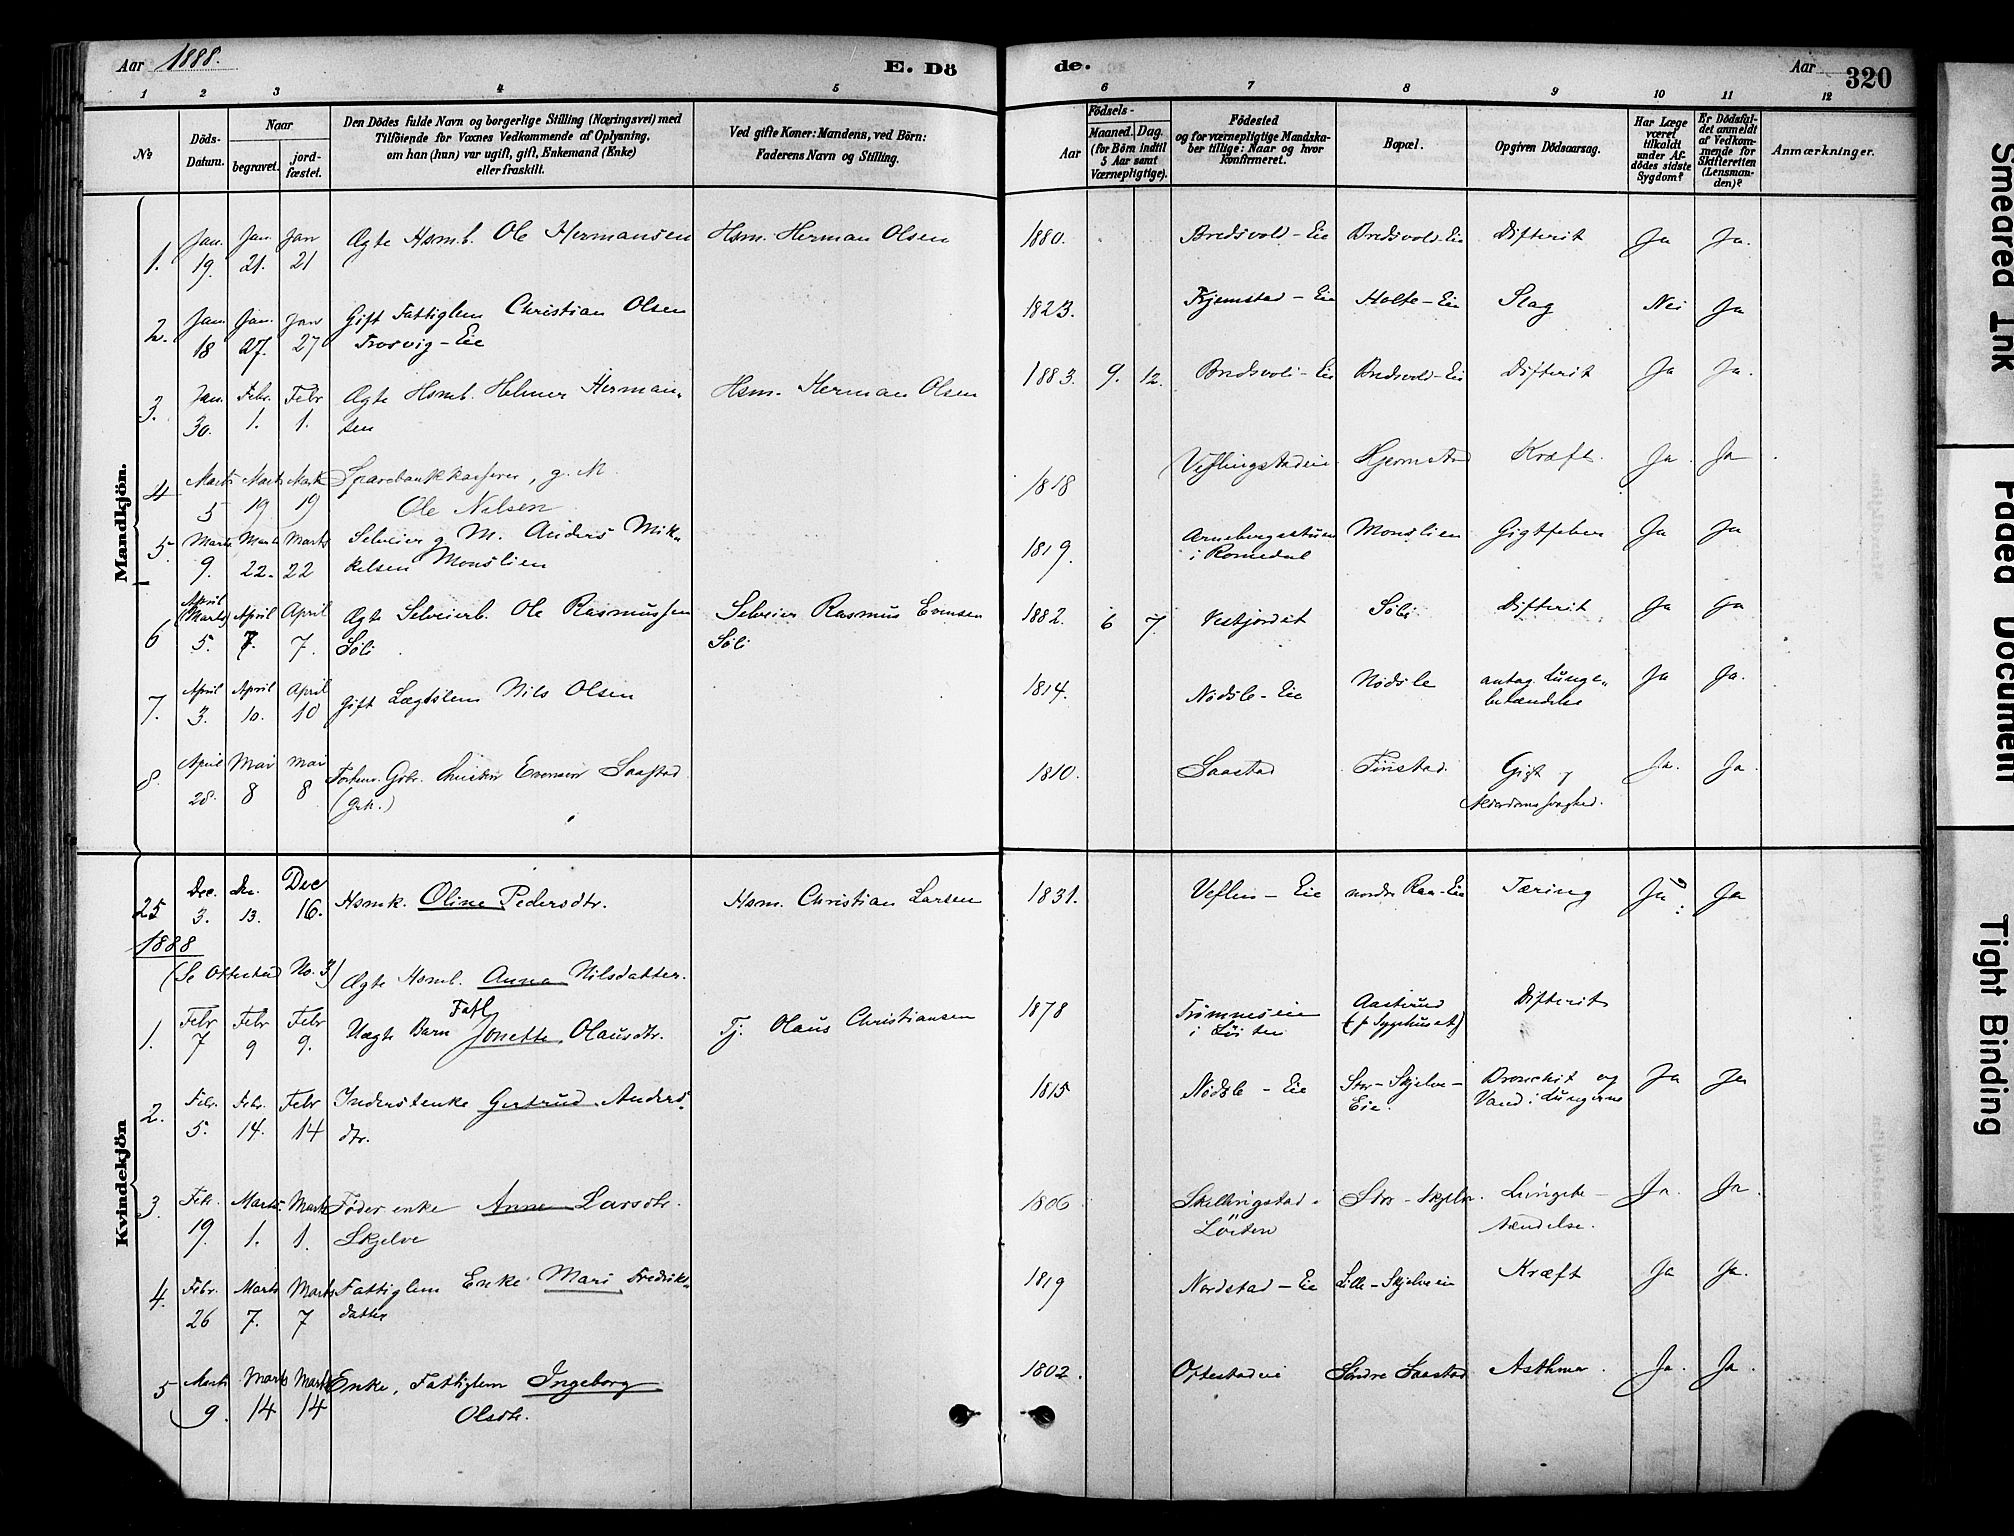 Aar 1888.
E. Dö
de.
Aar
320
1 2 3 4 5 6 7 8 9 10 11 12
№
Döds-Datum.
Naar
begravet.
jord-fæstet.
Den Dödes fulde Navn og borgerlige Stilling (Næringsvei) med
Tilföiende for Voxnes Vedkommende af Oplysning,
om han (hun) var ugift, gift, Enkemand (Enke)
eller fraskilt.
Ved gifte Koner: Mandens, ved Börn:
Faderens Navn og Stilling.
Födsels-
Aar
Maaned. Dag.
(for Börn indtil
5 Aar samt
Værnepligtige).
Födested
og for værnepligtige Mandska-
ber tillige: Naar og hvor
Konfirmeret.
Bopæl.
Opgiven Dödsaarsag.
Har Læge
været
tilkaldt
under Af-
dödes sidste
Sygdom?
Er Dödsfal-
det anmeldt
af Vedkom-
mende for
Skifteretten
(Lensman-
den)?
Anmærkninger.
Mandkjön.
1. Jan. 19. Jan. 21. Jan 21 Ægte Hsmb. Ole Hermansen Hsm. Herman Olsen 1880. Bredsvold-Eie Bredsvold-Eie Difterit Ja Ja.
2. Jan. 18 Jan. 27. Jan 27 Gift Fattiglem Christian Olsen
Trosvig-Eie 1823. Kjemstad-Eie Holte-Eie Slag Nei Ja
3. Jan. 30. Febr. 1. Febr 1. Ægte Hsmb. Helmer Herman-
sen Hsm. Herman Olsen 1883. 9. 12. Bredsvold-Eie Bredsvold-Eie Difterit Ja Ja.
4 Marts 5 Marts 19 Marts 19 Sparebankkasserer, g. M.
Ole Nilsen 1818 Veflingstadeie Hjemstad Kræft. Ja. Ja
5. Marts 9. Marts 22. Marts 22 Selveier g. M. Anders Mik-
kelsen Monslien 1819. Arnebergsstuen
i Romedal Monslien Gigtfeber Ja Ja
6 April (Marts) 5. April 7. April 7. Ægte Selveierb. Ole Rasmussen
Söli Selveier Rasmus Evensen
Söli 1882. 6 7. Vestjordet Söli Difterit Ja Ja
7. April 3. April 10. April 10 gift Lægdslem Nils Olsen 1814. Nödsle-Eie Nödsle antag. Lunge-
betændelse Ja Ja.
8. April 28. Mai 8 Mai 8 Forhenv. Gbr. Christen Evensen Saastad
(Gift.) 1810. Saastad Finstad. Gigt og
Alderdomssvaghed. Ja. Ja.
25 Dec. 3. Dec. 13. Dec 16. Hsmk. Oline Pedersdtr. Hsm. Christian Larsen 1831. Veflen-Eie nordre Raa-Eie Tæring Ja Ja
1888
(Se Ottestad No. 3) Ægte Hsmb. Anna Nilsdatter.
Kvindekjön
1. Febr 7 Febr 9 Febr. 9. Uægte Barn Fatl Jonette Olausdtr. Tj. Olaus Christiansen 1878 Trömneseie
i Löiten Aasterud
(p. Sygehuset) Difterit
2. Febr. 5. Febr. 14. Febr 14 Inderstenke Gertrud Anders-
dtr. 1815 Nödsle-Eie Stor-Skjelve-
Eie. Bronchit og
Vand i Lungerne Ja Ja
3. Febr. 19. Marts 1. Marts 1. Föder enke Anne Larsdtr.
Skjelve 1806 Skellingstad i
Löiten Stor-Skjelve Lungebe-
tændelse. Ja. Ja.
4. Febr. 26 Marts 7. Marts 7 Fattiglem Enke Mari Fredriks-
datter 1819 Nordstad-Eie Lille-Skjelveeie Kræft Ja Ja.
5 Marts 9. Marts 14 Marts 14 Enke, Fattiglem Ingeborg
Olsdtr. 1802. Ottestadeie Söndre Saastad Asthma. Ja. Ja.
Smeared Ink
Faded Document
Tight Binding